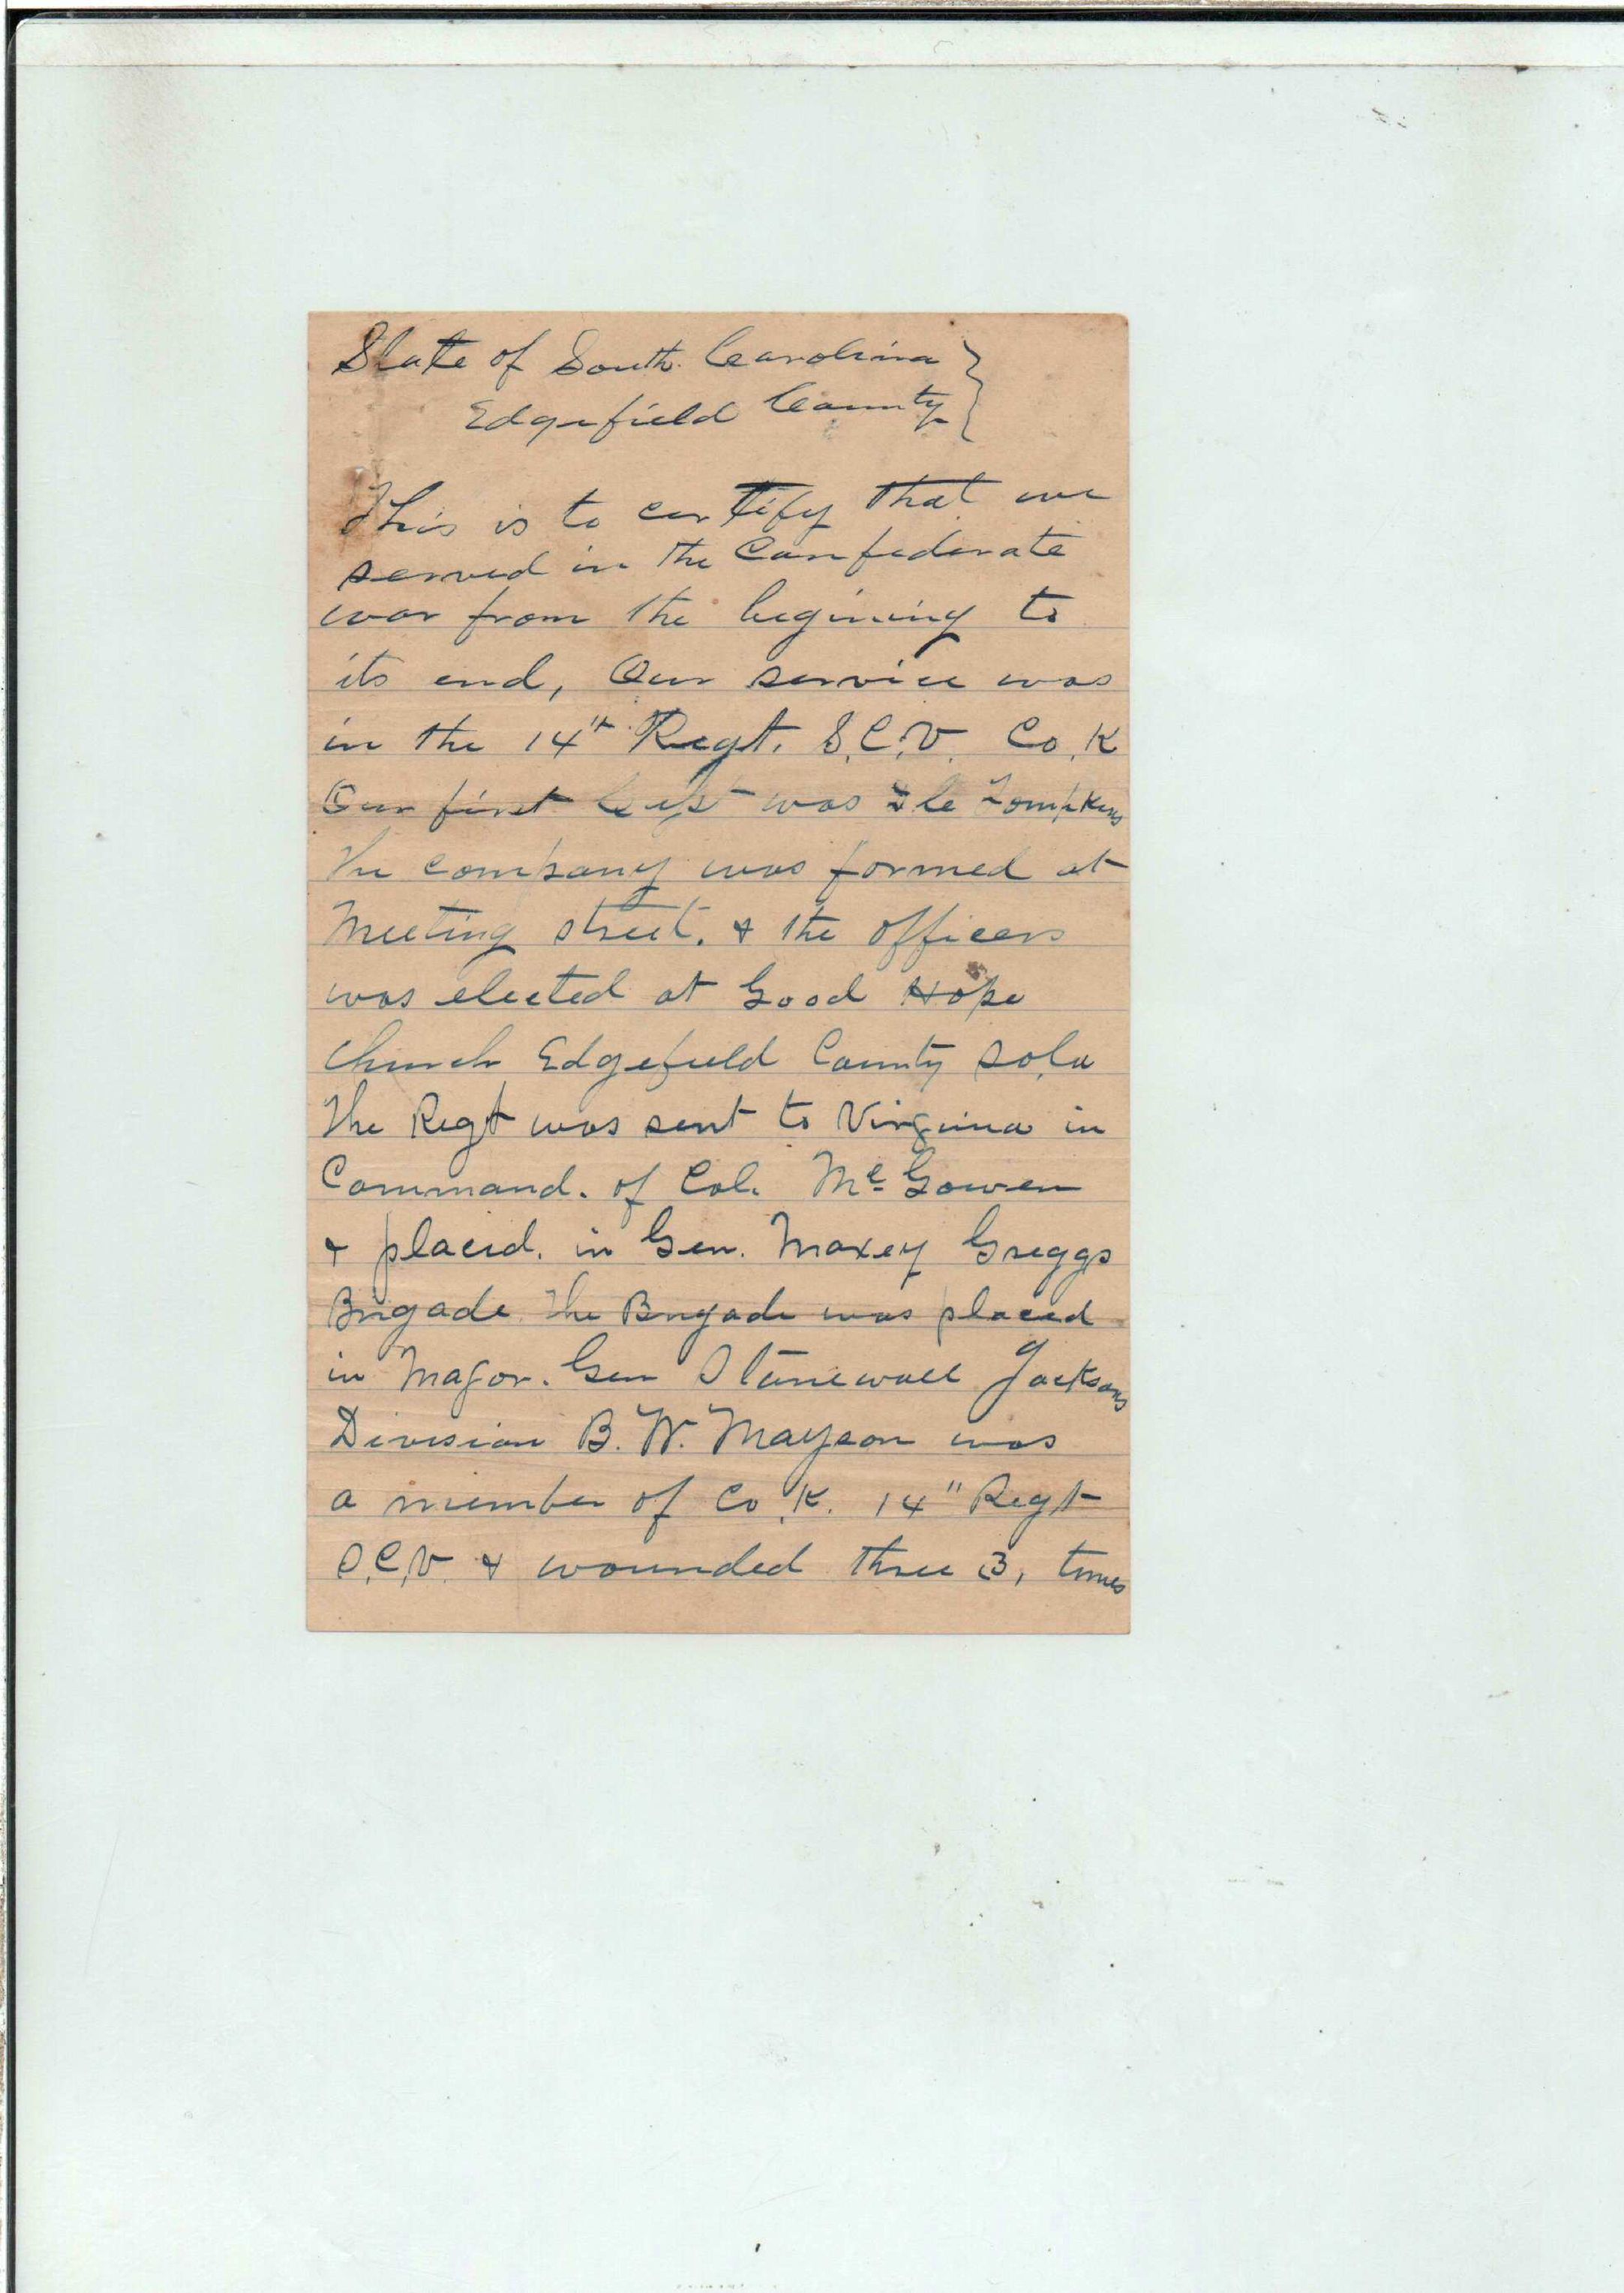 State of South. Carolina }
Edgefield County }
This is to certify that we
served in the Confederate
war from the begining to
its end, Our service was
in the 14th Regt. S.C.V. Co. K
Our first Capt was Tompkins
The company was formed at
Meeting street. & the officers
was elected at Good Hope
Church Edgefield County So.Ca
The Regt was sent to Virginia in
Command. of Col. McGowen
& placed. in Gen. Maxey Greggs
Brigade. The Brigade was placed
in Major. Gen Stonewall Jacksons
Division B. W. Mayson was
a member of Co. K. 14" Regt
S.C.V. & wounded three 3, times